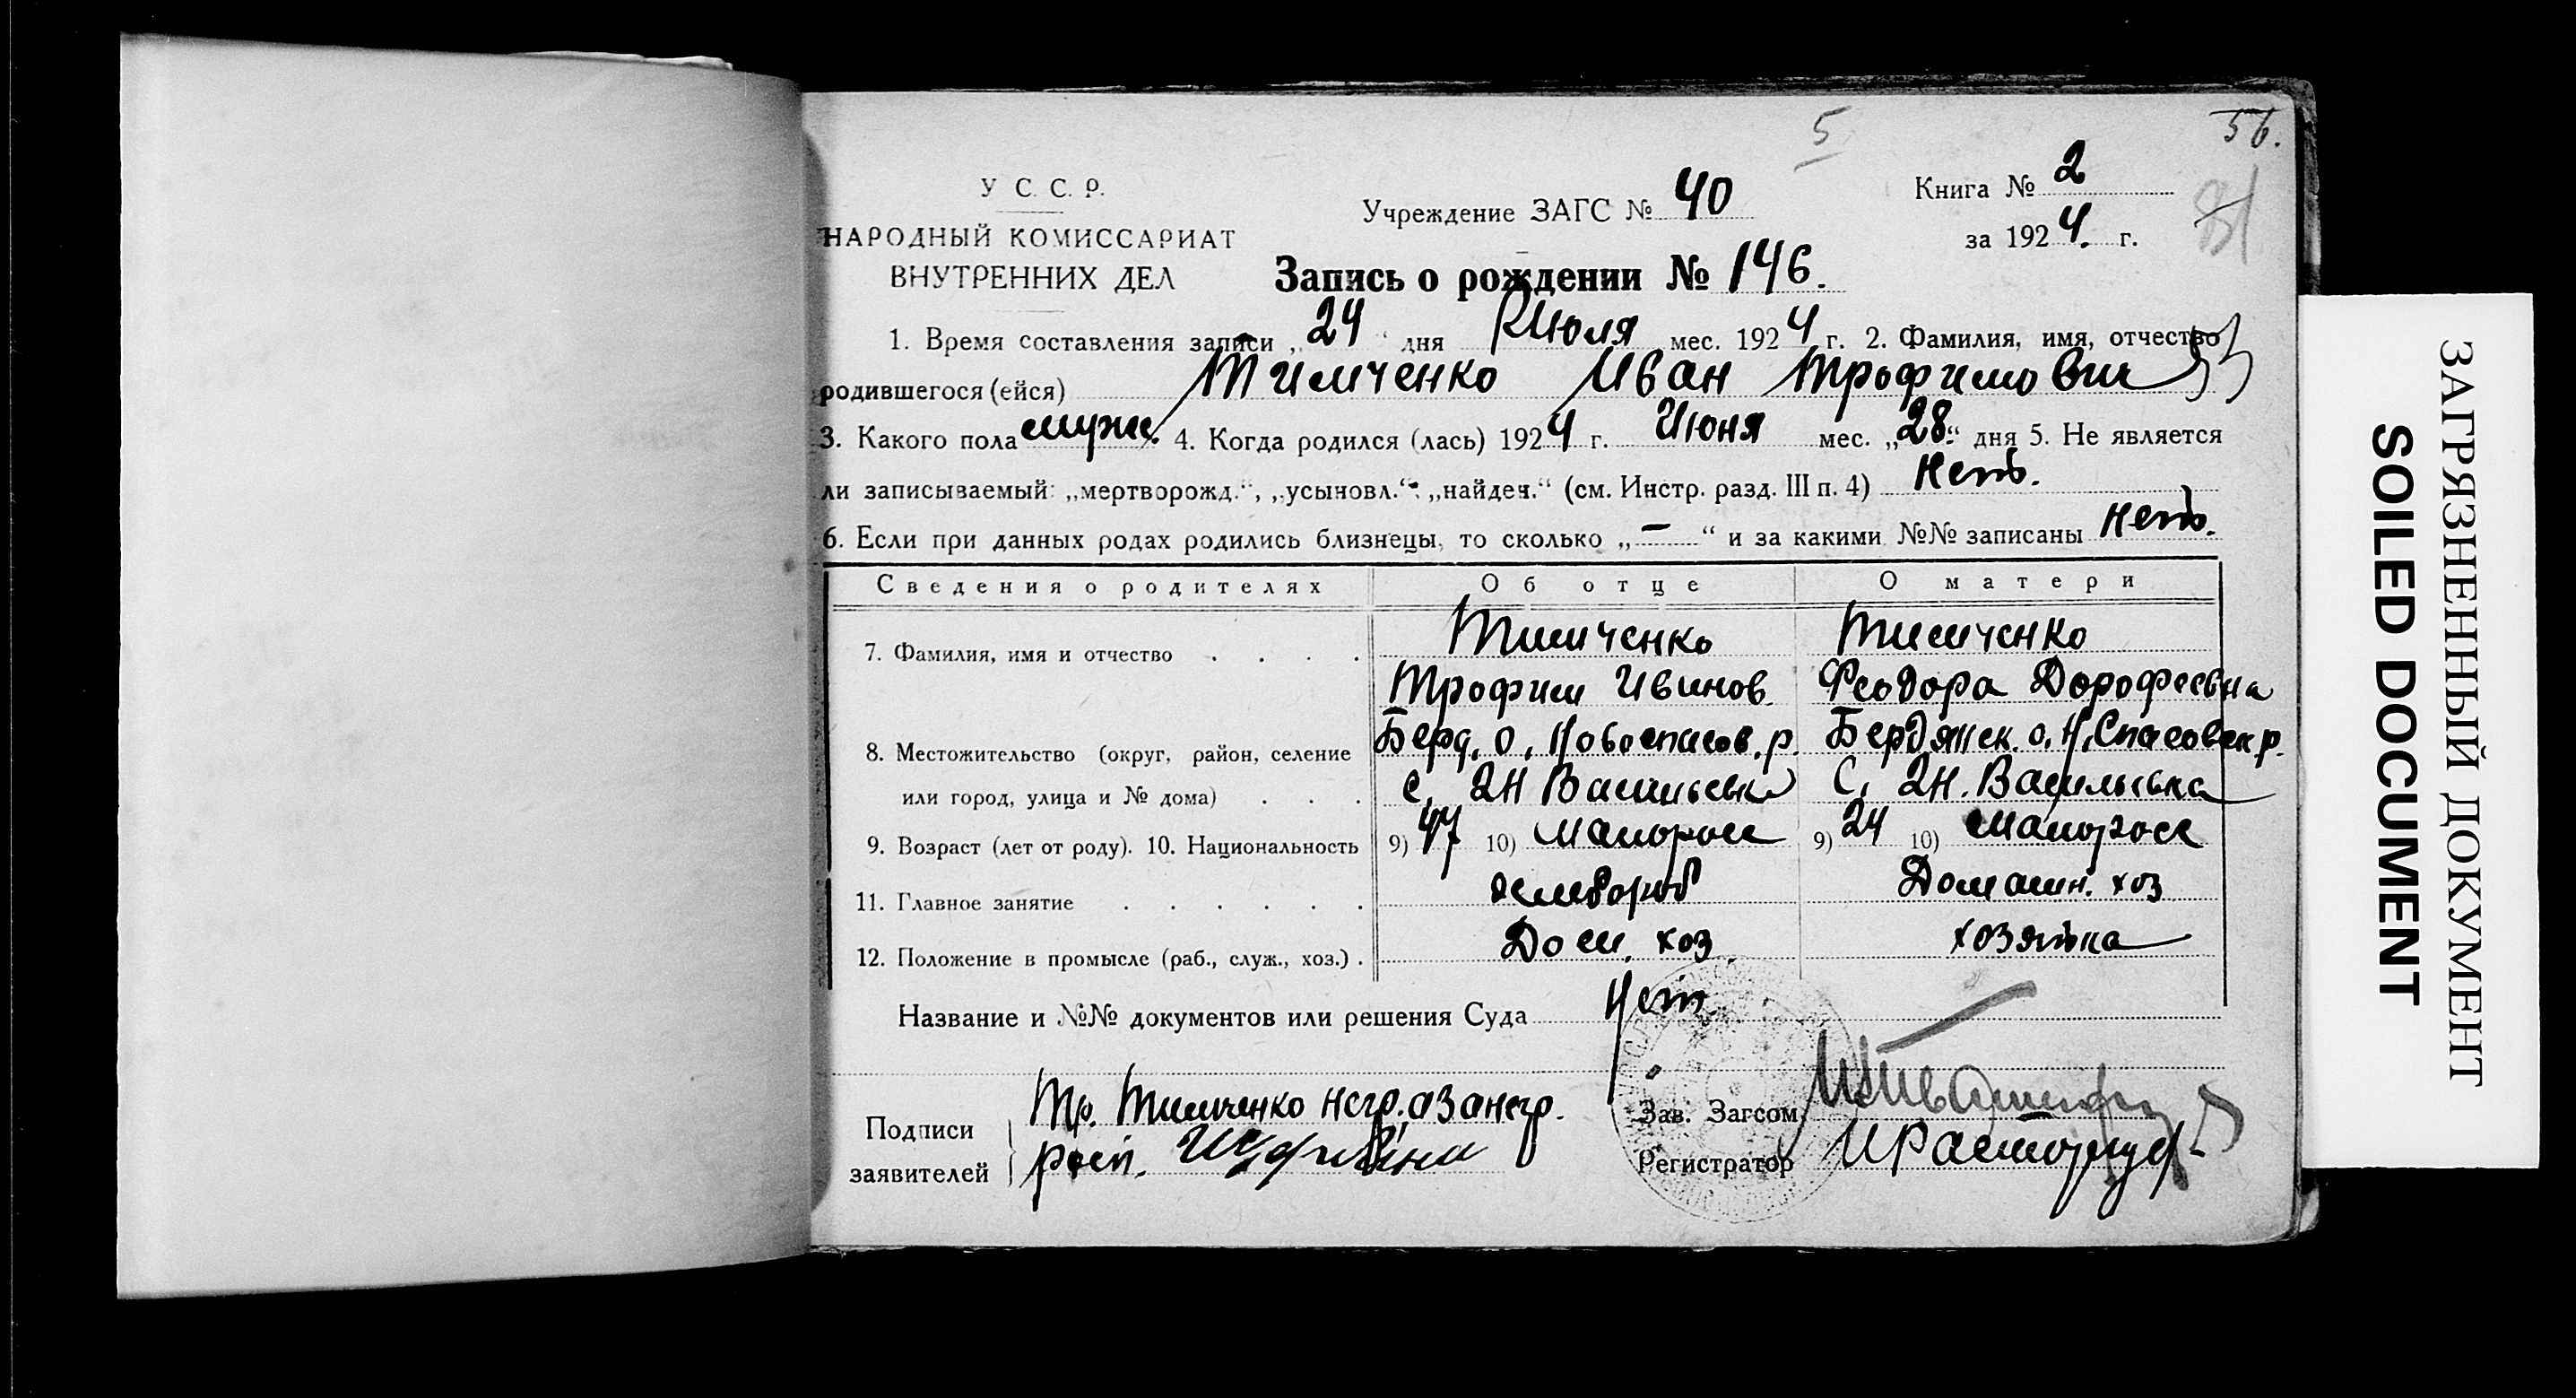 5
56.
У С. С. Р.
НАРОДНЫЙ КОМИССАРИАТ
ВНУТРЕННИХ ДЕЛ
Учреждение ЗАГС № 40
Книга № 2
за 1924. г.
Запись о рождении № 146.
1. Время составления записи „24“ дня Июля мес. 1924 г. 2. Фамилия, имя, отчество
родившегося (ейся) Тимченко Иван Трофимович
3. Какого пола мужс. 4. Когда родился (лась) 1924 г. Июня мес. „28.“ дня 5. Не является
ли записываемый: „мертворожд.“, „усыновл.“, „найден.“ (см. Инстр. разд. III п. 4) Нетъ.
6. Если при данных родах родились близнецы, то сколько „—“ и за какими №№ записаны Нетъ.
Сведения о родителях Об отце О матери
7. Фамилия, имя и отчество . . . . Тимченко Тимченко
Трофим Иванов Феодора Дорофеевна
8. Местожительство (округ, район, селение Берд. о. Новоспасов. р. Бердянск. о. Н. Спасовск р.
или город, улица и № дома) . . . с. 2Н Васильевк С. 2Н. Васильевка
9. Возраст (лет от роду). 10. Национальность 9) 47 10) Малорос 9) 24 10) Малорос
11. Главное занятие . . . . . . Хлебороб Домашн. хоз
12. Положение в промысле (раб., служ., хоз.) . Дом. хоз. хозяйка
Название и №№ документов или решения Суда Нет
Подписи
заявителей
Тр. Тимченко негр. а за негр.
расп.
Зав. Загсом
Регистратор
ЗАГРЯЗНЕННЫЙ ДОКУМЕНТ
SOILED DOCUMENT